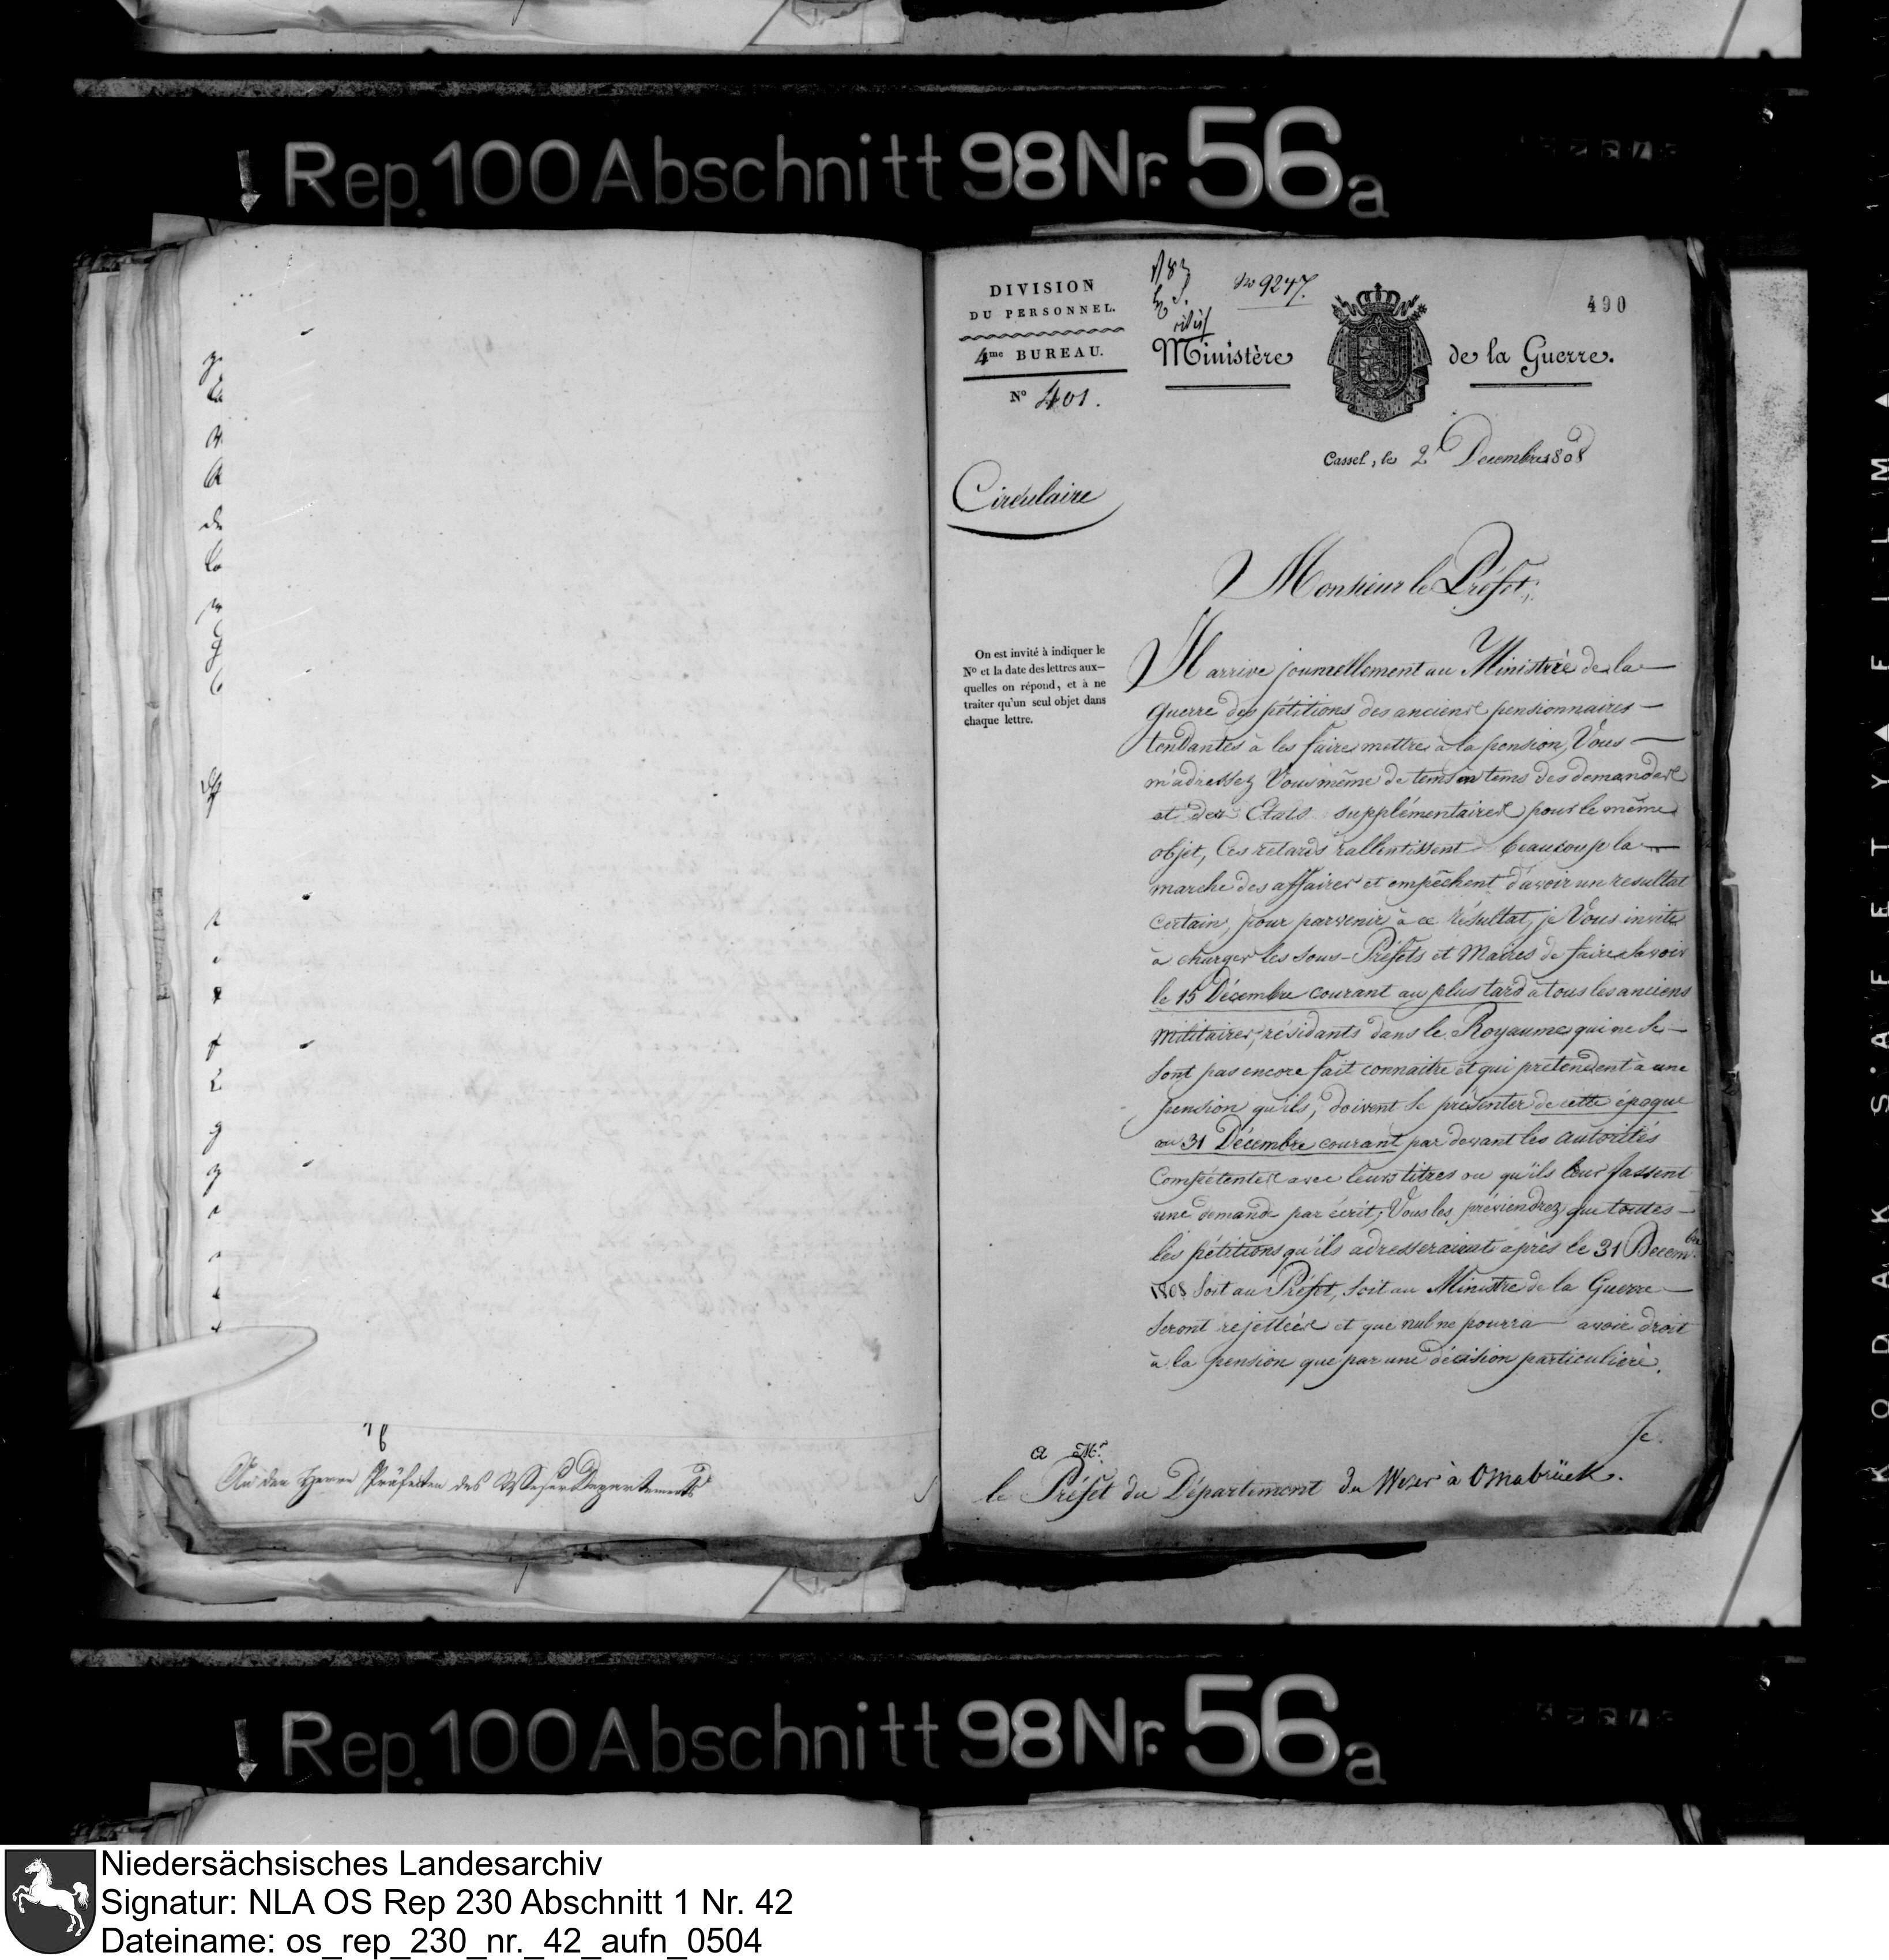 Rep. 100 Abschnitt 98 Nr. 56a
An den Herrn Präfecten des Weser Departements
DIVISION
DU PERSONNEL.
4me BUREAU.
No 401.
No 9247.
490
Ministère de la Guerre.
Cassel, le 2 Decembre 1808
Circulaire
Monsieur le Préfet,
On est invité à indiquer le
No et la date des lettres aux-
quelles on répond, et à ne
traiter qu'un seul objet dans
chaque lettre.
Il arrive journellement au Ministère de la
guerre des pétitions des anciens pensionnaires
tendantes à les faire mettre à la pension, Vous
m'adressez Vous même de tems en tems des demandes
et des Etats supplémentaires pour le même
objet, Ces retards rallentissent beaucoup la
marche des affaires et empêchent d'avoir un resultat
certain, pour parvenir à ce résultat, je Vous invite
à charger les sous-Préfets et Maires de faire Savoir
le 15 Décembre courant au plus tard à tous les anciens
militaires, résidants dans le Royaume qui ne se
sont pas encore fait connaitre et qui prétendent à une
pension qu'ils, doivent se présenter de cette époque
au 31 Décembre courant par devant les autorités
Compétentes avec leurs titres ou qu'ils leur fassent
une demande par écrit; Vous les préviendrez que toutes
les pétitions qu'ils adresseraient après le 31 Decembre
1808 soit au Préfet, soit au Ministre de la Guerre
Seront rejettées et que nul ne pourra avoir droit
à la pension que par une décision particulière.
Je
A Mr.
le Préfet du Département du Weser à Osnabrück.
Rep. 100 Abschnitt 98 Nr. 56a
KODAK SAFETY FILM
Niedersächsisches Landesarchiv
Signatur: NLA OS Rep 230 Abschnitt 1 Nr. 42
Dateiname: os_rep_230_nr._42_aufn_0504